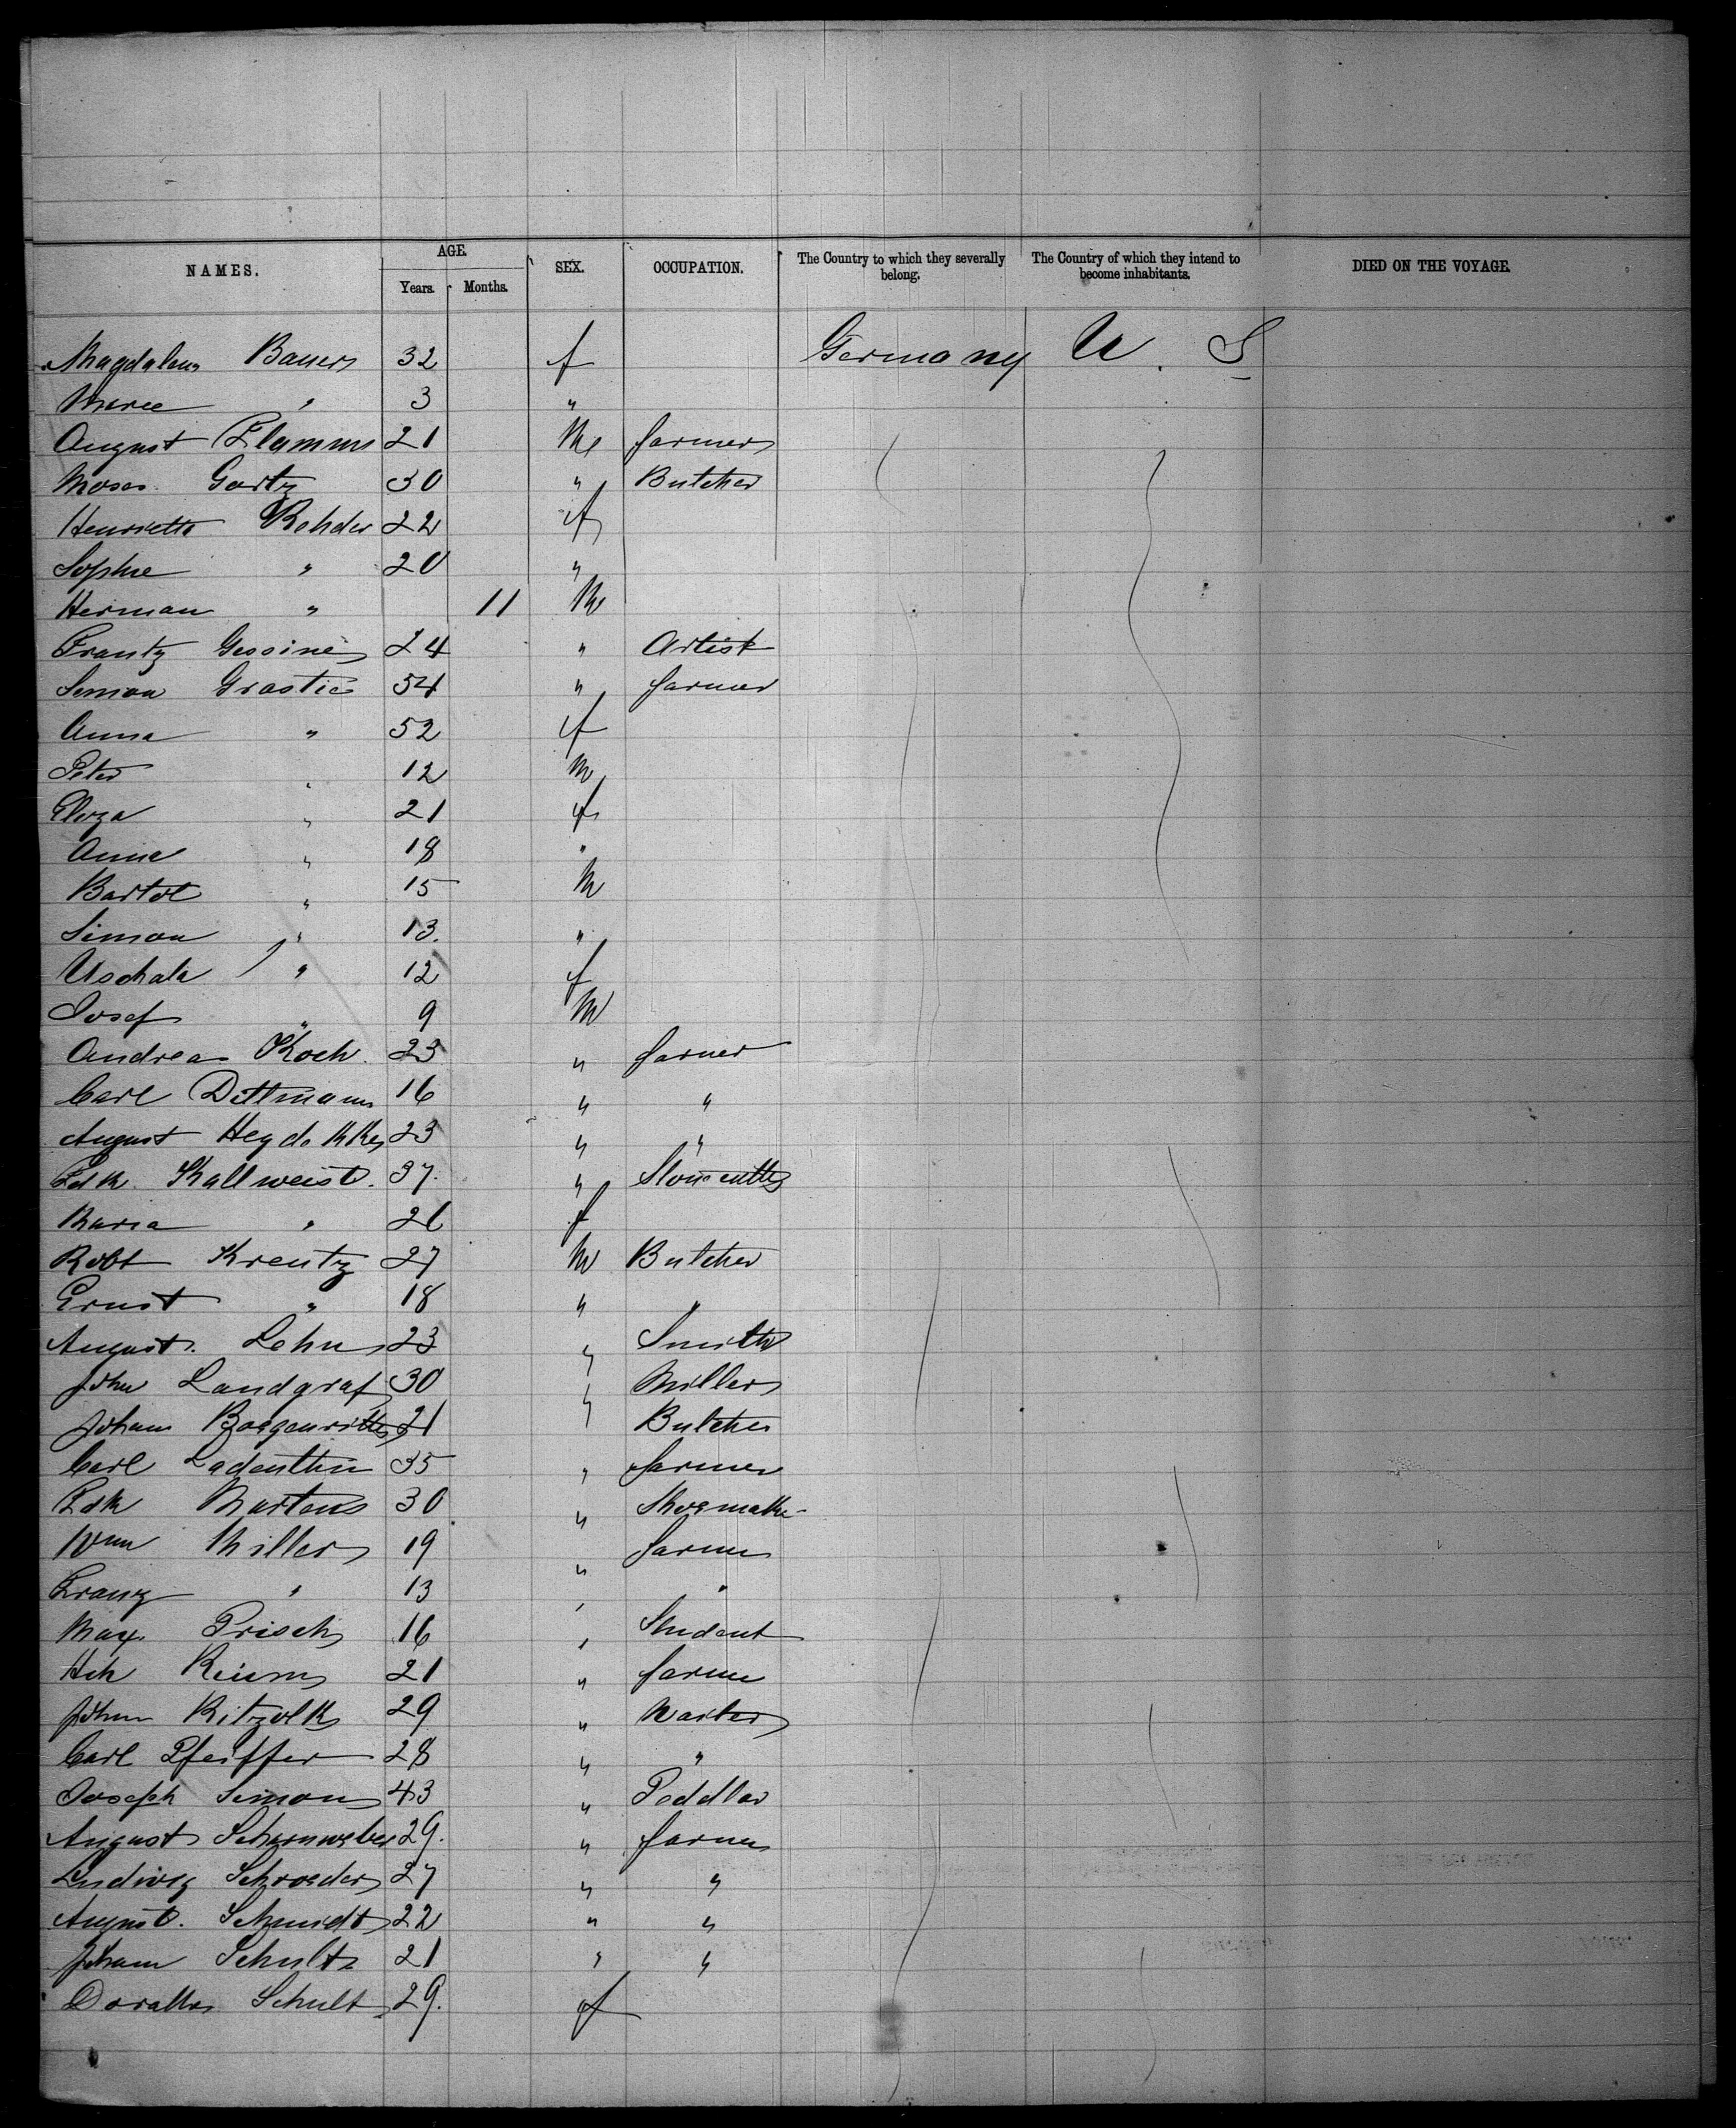 NAMES. AGE. SEX. OCCUPATION. The Country to which they severally belong. The Country of which they intend to become inhabitants. DIED ON THE VOYAGE.
Years. Months.
Magdalena Bauer 32 f Germany U. S
Marie " 3 "
August 21 M farmer
Moses Gortz 30 " Butcher
Henrietta Rohder 22 f
Sophie " 20 "
Herman " 11 M
Frantz 24 " Artist
Simon Grastic 54 " farmer
Anna " 52 f
Peter " 12 M
Eliza " 21 f
Anna " 18 "
Bartol " 15 M
Simon " 13. "
Uschala " 12 f
Josef " 9 M
Andreas Koch 23 " farmer
Carl Dittmann 16 " "
August 23 " "
Fdk Kallweist. 37. " Stonecutter
Maria " 26 f
Robt Kreutz 27 M Butcher
Ernst " 18 " "
August. Lehn 23 " Smith
John Landgraf 30 " Miller
Johann 21 " Butcher
Carl Ladenthin 35 " farmer
Fdk Martens 30 " Shoemaker
Wm Miller 19 " farmer
Franz " 13 " "
Max Prisch 16 " Student
Hch 21 " farmer
John Ritzolk 29 " Waiter
Carl Pfeiffer 28 " "
Joseph Simon 43 " Peddlar
August Schornweber 29. " farmer
Ludwig Schroeder 27 " "
August. Schmidt 22 " "
Johann Schultz 21 " "
Schult 29. f